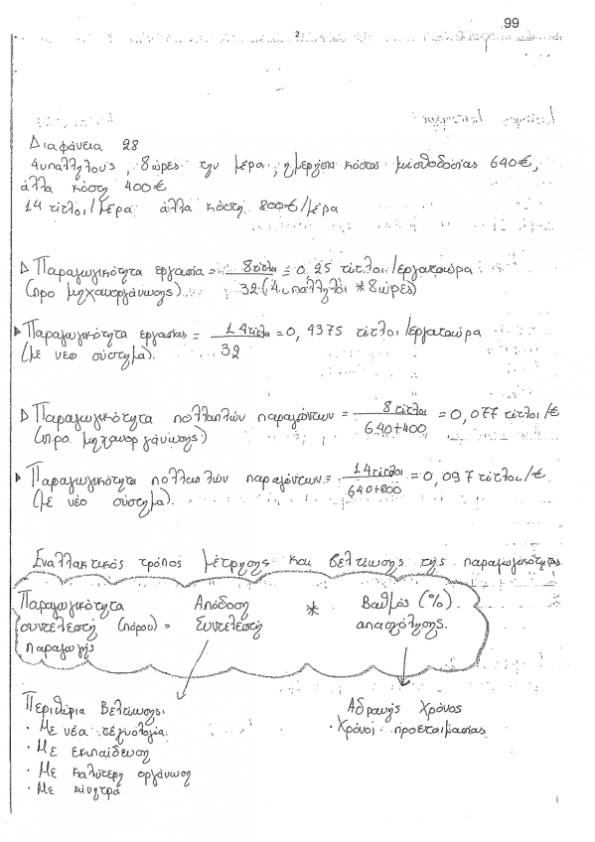 99
2
Διαφάνεια 28
4υπαλλήλους, 8ώρες την μέρα, ημερήσιο κόστος μισθοδοσίας 640€,
άλλα κόστη 400€
14 τίτλοι/μέρα άλλα κόστη 800€/μέρα
Παραγωγικότητα εργασία = 8τίτλοι / 32 (4 υπάλληλοι * 8ώρες) = 0,25 τίτλοι/εργατοώρα
(προ μηχανοργάνωσης)
Παραγωγικότητα εργασίας = 14τίτλοι / 32 = 0,4375 τίτλοι/εργατοώρα
(με νέο σύστημα).
Παραγωγικότητα πολλαπλών παραγόντων = 8 τίτλοι / 640+400 = 0,077 τίτλοι/€
(προ μηχανοργάνωσης)
Παραγωγικότητα πολλαπλών παραγόντων = 14τίτλοι / 640+800 = 0,097 τίτλοι/€
(με νέο σύστημα).
Εναλλακτικός τρόπος μέτρησης και βελτίωσης της παραγωγικότητας
Παραγωγικότητα συντελεστή (πόρου) παραγωγής = Απόδοση Συντελεστή * Βαθμός (%) απασχόλησης.
Περιθώρια Βελτίωσης:
· Με νέα τεχνολογία
· Με εκπαίδευση
· Με καλύτερη οργάνωση
· Με κίνητρα
Αδρανής Χρόνος
· Χρόνοι προετοιμασίας